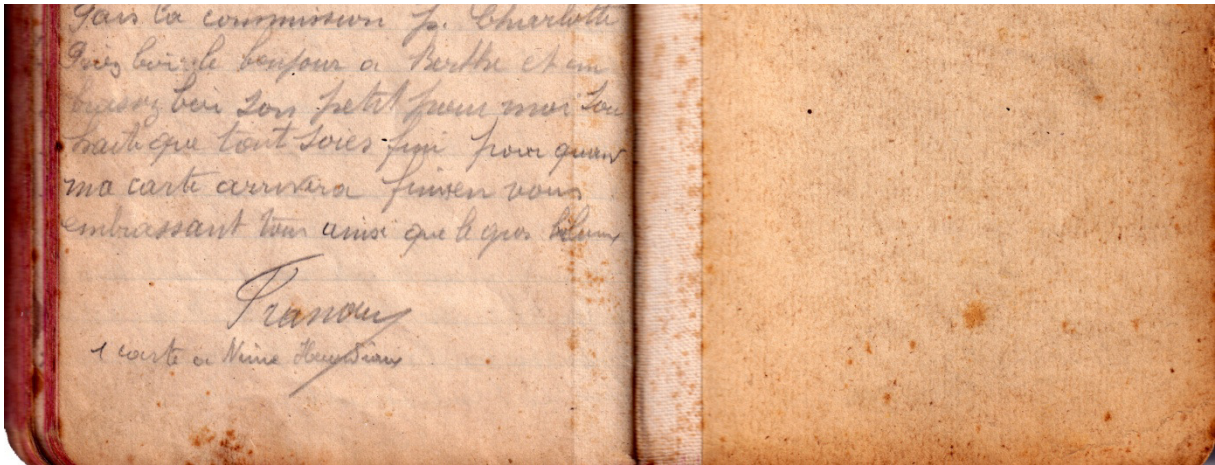 fais la commission p. Charlotte
bien le bonjour a Berthe et em
brassez bien son petit pour moi sou
haite que tout soies fini pour quand
ma carte arrivera finis en vous
embrassant tous ainsi que le gros
1 carte a